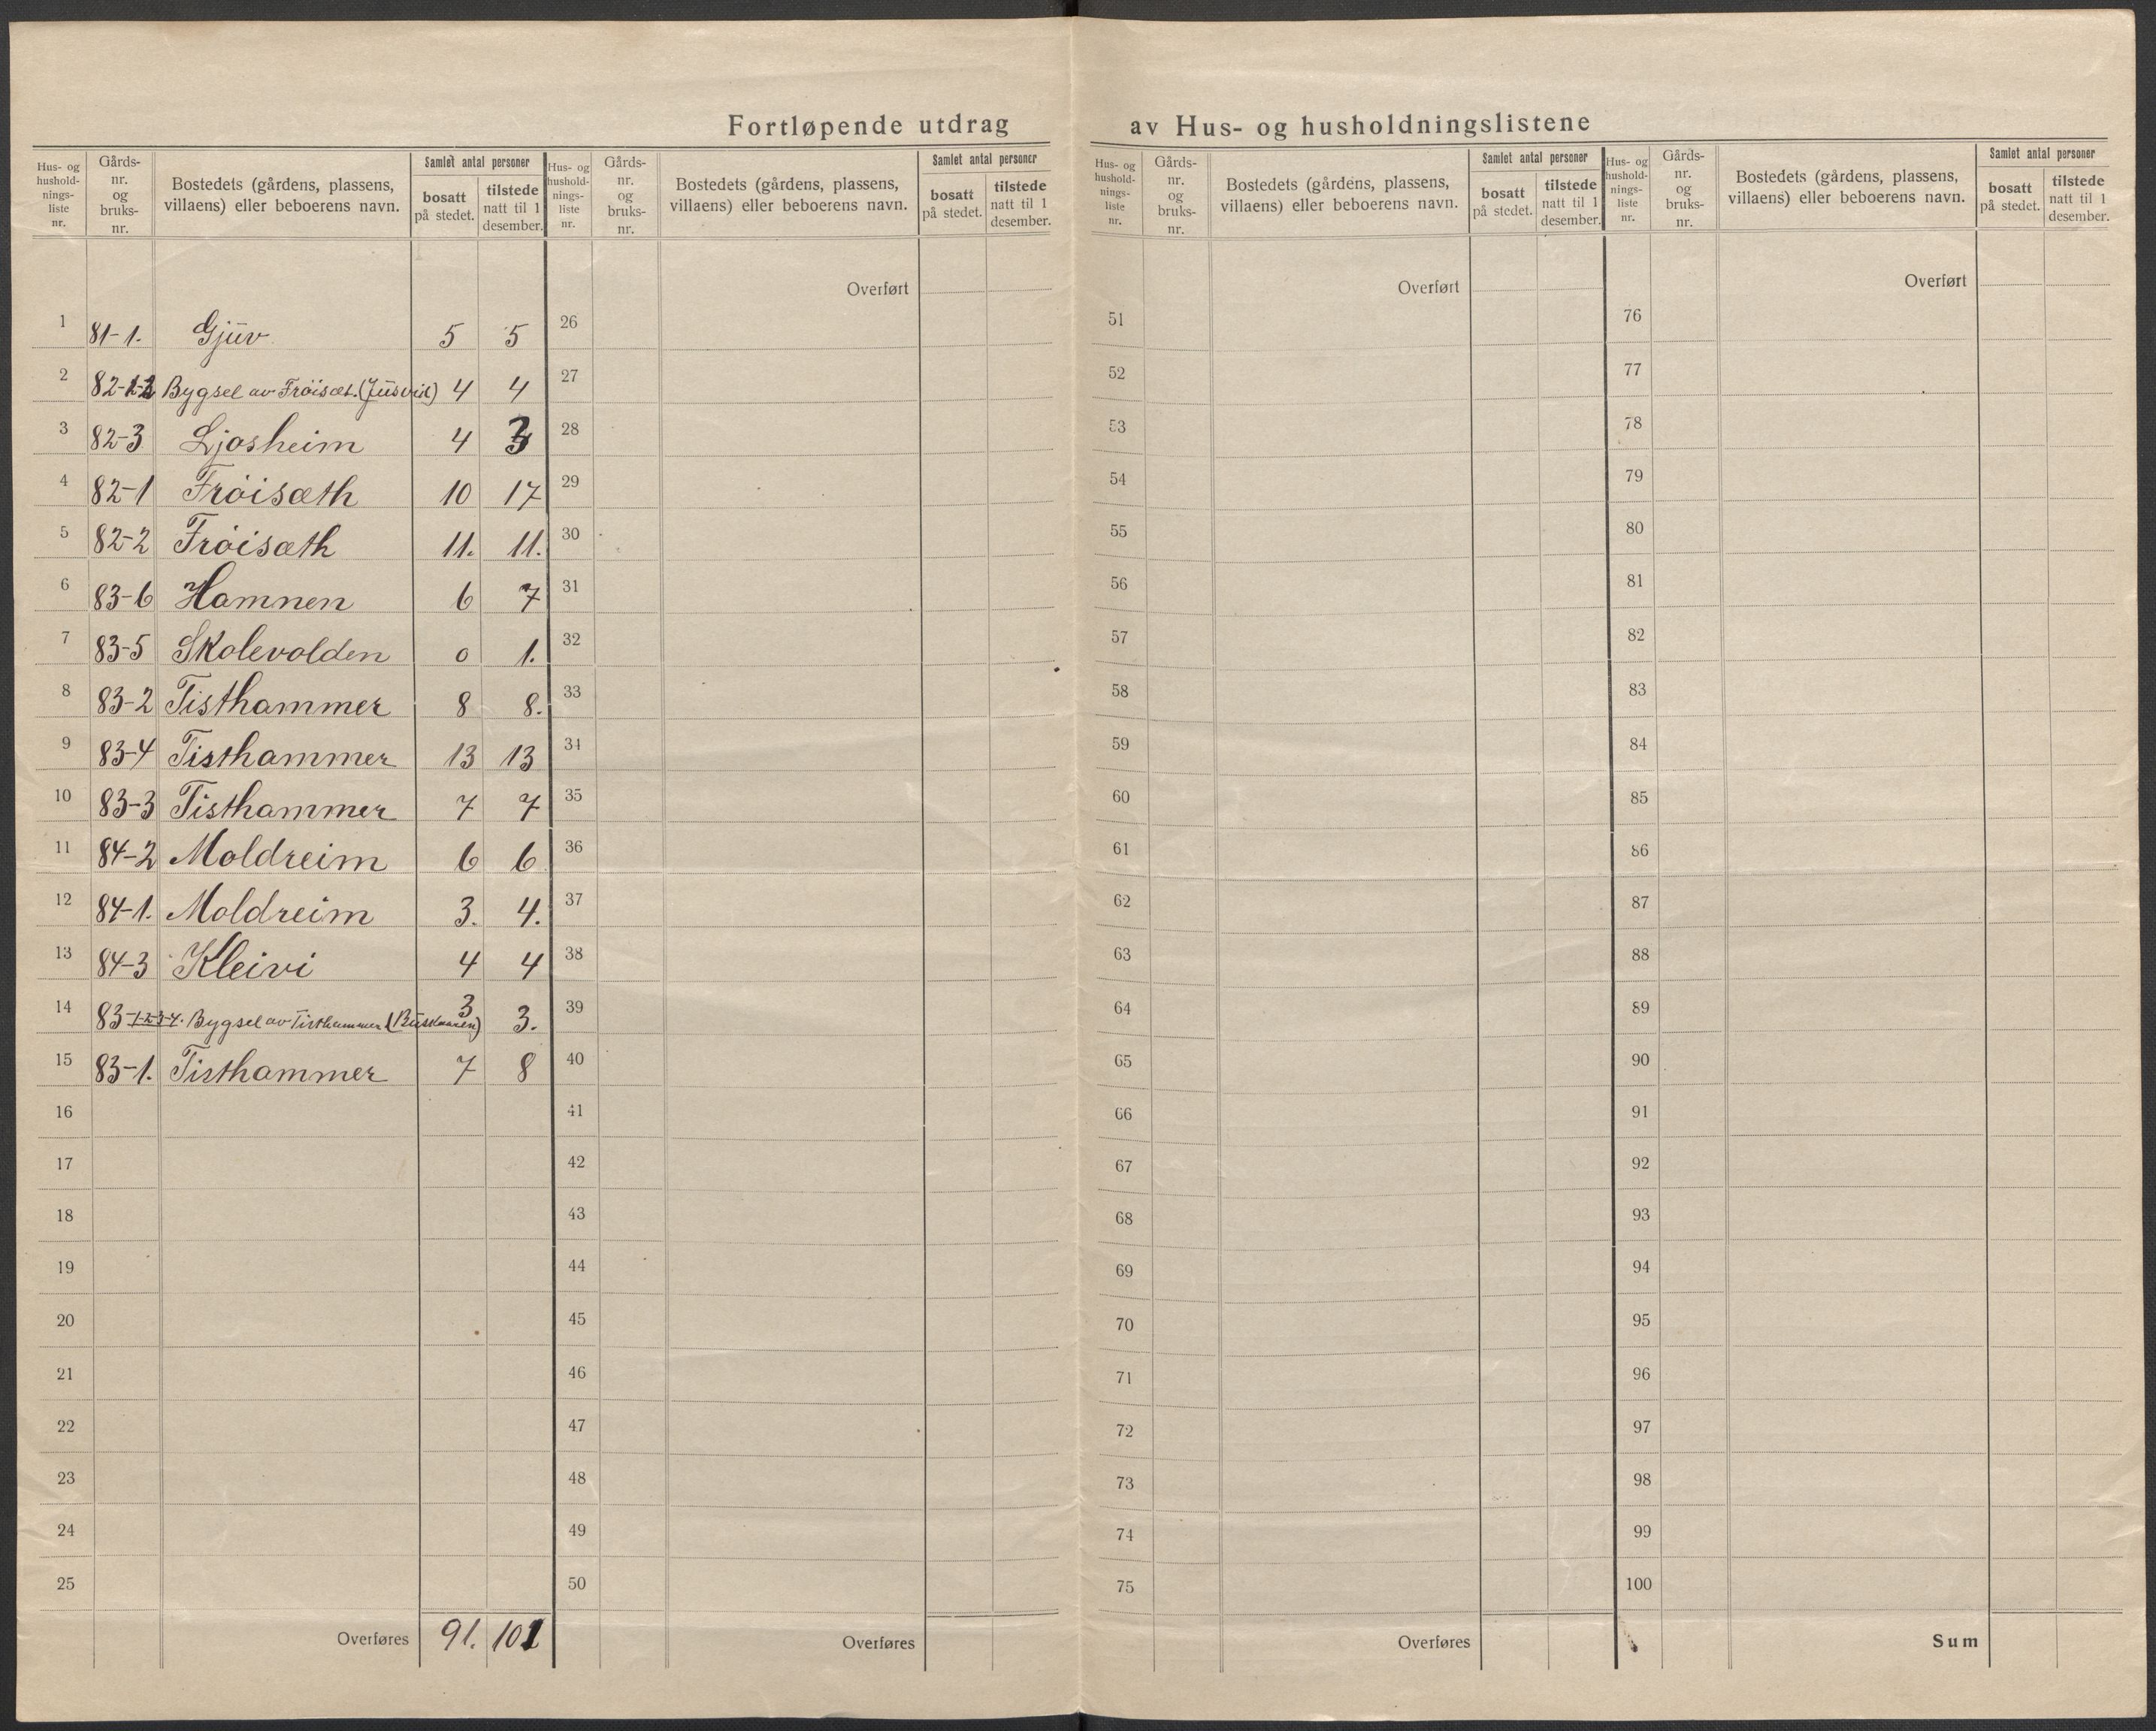 Fortløpende utdrag av Hus- og husholdningslistene
Hus- og hushold-nings-liste nr. Gårds-nr. og bruks-nr. Bostedets (gårdens, plassens, villaens) eller beboerens navn. Samlet antal personer bosatt på stedet. tilstede natt til 1 desember.
1 81-1. Gjüv 5 5
2 82-1-2 Bygsel av Fröisæt. (Jüsvik) 4 4
3 82-3 Ljosheim 4 3
4 82-1 Fröisæth 10 17
5 82-2 Fröisæth 11. 11.
6 83-6 Hamnen 6 7
7 83-5 Skolevolden 0 1.
8 83-2 Tisthammer 8 8.
9 83-4 Tisthammer 13 13
10 83-3 Tisthammer 7 7
11 84-2 Moldreim 6 6
12 84-1. Moldreim 3. 4.
13 84-3 Kleivi 4 4
14 83-1-2-3-4. Bygsel av Tisthammer 3 3.
15 83-1. Tisthammer 7 8
16
17
18
19
20
21
22
23
24
25
Overføres 91. 101
Hus- og hushold-nings-liste nr. Gårds-nr. og bruks-nr. Bostedets (gårdens, plassens, villaens) eller beboerens navn. Samlet antal personer bosatt på stedet. tilstede natt til 1 desember.
Overført
26
27
28
29
30
31
32
33
34
35
36
37
38
39
40
41
42
43
44
45
46
47
48
49
50
Overføres
Hus- og hushold-nings-liste nr. Gårds-nr. og bruks-nr. Bostedets (gårdens, plassens, villaens) eller beboerens navn. Samlet antal personer bosatt på stedet. tilstede natt til 1 desember.
Overført
51
52
53
54
55
56
57
58
59
60
61
62
63
64
65
66
67
68
69
70
71
72
73
74
75
Overføres
Hus- og hushold-nings-liste nr. Gårds-nr. og bruks-nr. Bostedets (gårdens, plassens, villaens) eller beboerens navn. Samlet antal personer bosatt på stedet. tilstede natt til 1 desember.
Overført
76
77
78
79
80
81
82
83
84
85
86
87
88
89
90
91
92
93
94
95
96
97
98
99
100
Sum